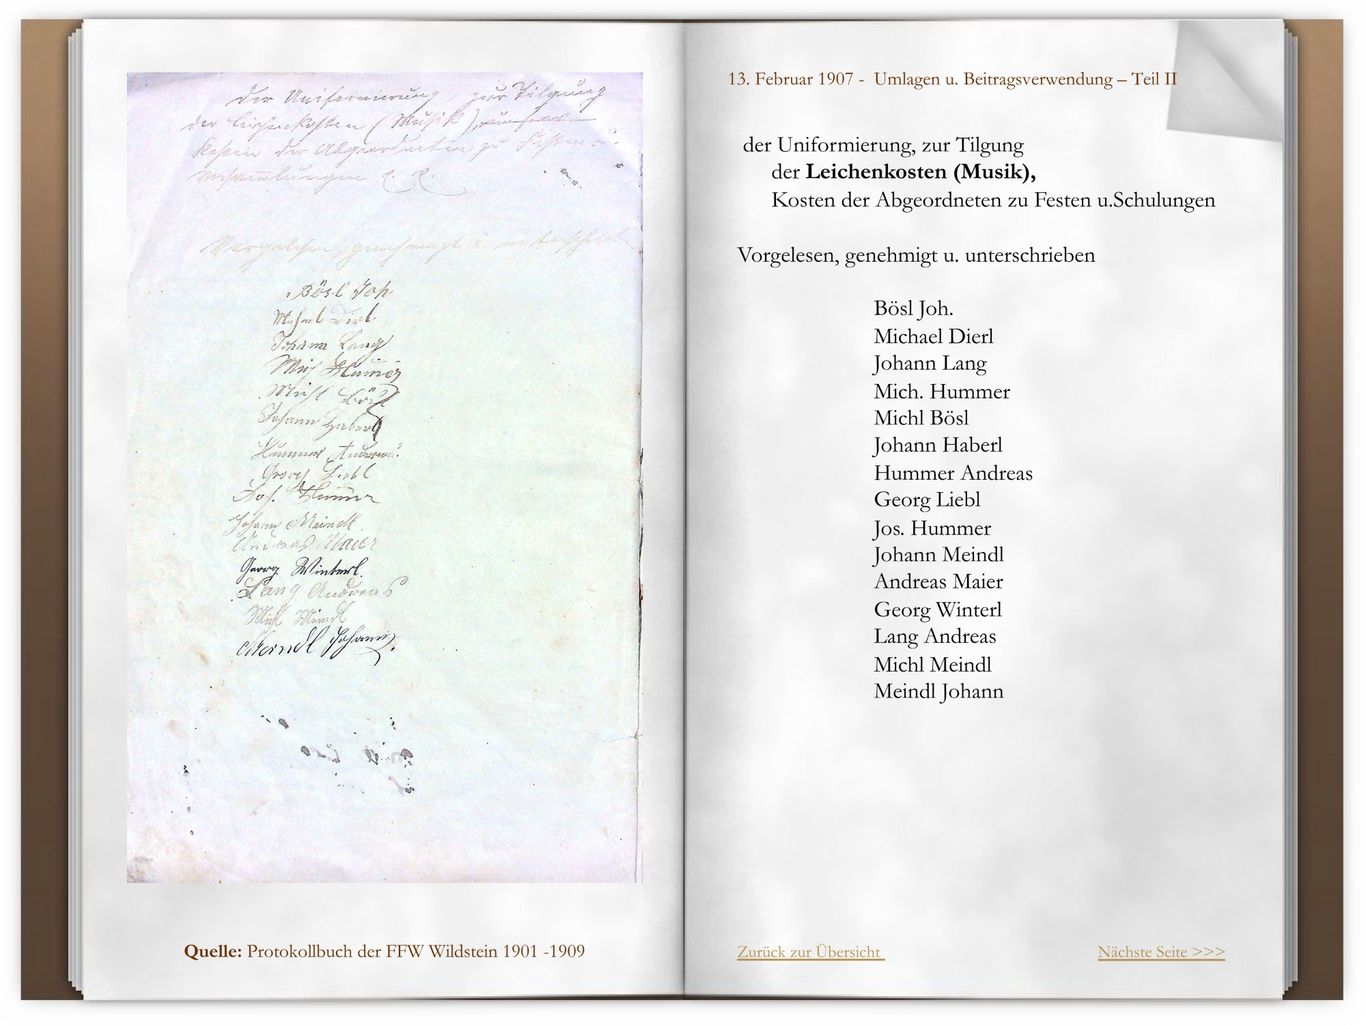 der Uniformierung, zur Tilgung
der Leichenkosten (Musik),
Kosten der Abgeordneten zu Festen u.
Vorgelesen, genehmigt u. unterschrieben
Bösl Joh
Michael Dierl
Johann Lang
Mich Hummer
Michl Bösl
Johann Haberl
Hummer Andreas
Georg Liebl
Jos. Hummer
Johann Meindl
Andreas Maier
Georg Winterl
Lang Andreas
Michl Meindl
Meindl Johann.
Quelle: Protokollbuch der FFW Wildstein 1901 -1909
13. Februar 1907 - Umlagen u. Beitragsverwendung – Teil II
der Uniformierung, zur Tilgung
der Leichenkosten (Musik),
Kosten der Abgeordneten zu Festen u.Schulungen
Vorgelesen, genehmigt u. unterschrieben
Bösl Joh.
Michael Dierl
Johann Lang
Mich. Hummer
Michl Bösl
Johann Haberl
Hummer Andreas
Georg Liebl
Jos. Hummer
Johann Meindl
Andreas Maier
Georg Winterl
Lang Andreas
Michl Meindl
Meindl Johann
Zurück zur Übersicht
Nächste Seite >>>